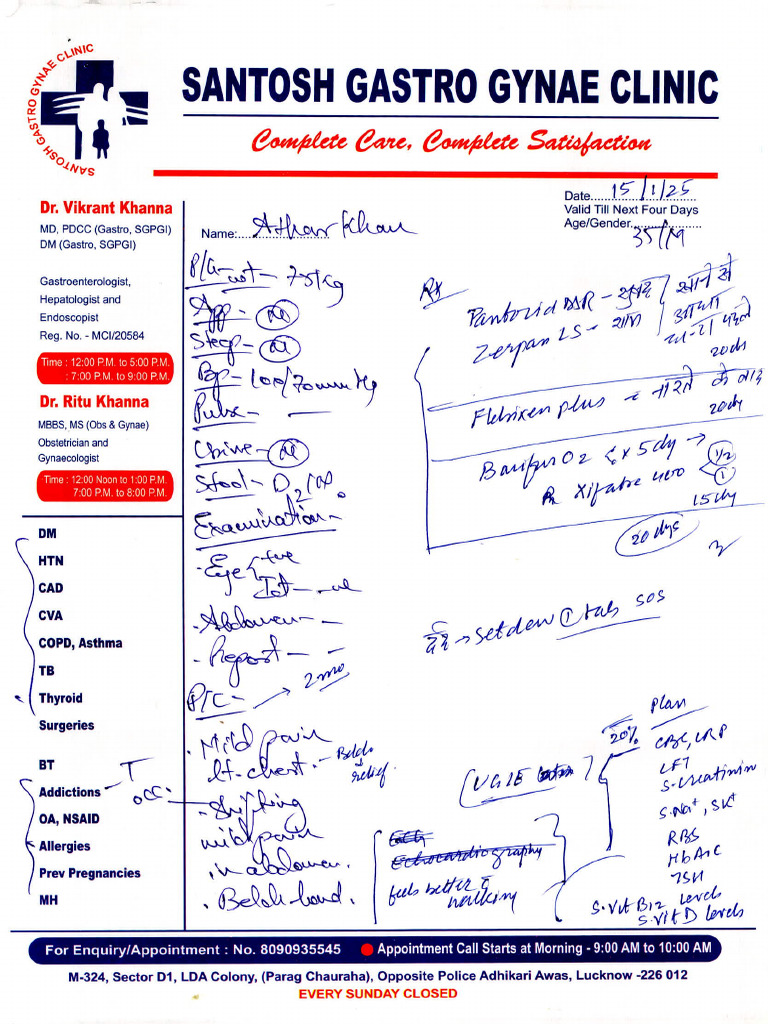 SANTOSH GASTRO GYNAE CLINIC
SANTOSH GASTRO GYNAE CLINIC
Complete Care, Complete Satisfaction
Dr. Vikrant Khanna
MD, PDCC (Gastro, SGPGI)
DM (Gastro, SGPGI)
Gastroenterologist,
Hepatologist and
Endoscopist
Reg. No. - MCI/20584
Time : 12:00 P.M. to 5:00 P.M.
: 7:00 P.M. to 9:00 P.M.
Dr. Ritu Khanna
MBBS, MS (Obs & Gynae)
Obstetrician and
Gynaecologist
Time : 12:00 Noon to 1:00 P.M.
7:00 P.M. to 8:00 P.M.
DM
HTN
CAD
CVA
COPD, Asthma
TB
Thyroid
Surgeries
BT
Addictions
OA, NSAID
Allergies
Prev Pregnancies
MH
T
occ.
Date 15/1/25
Valid Till Next Four Days
Age/Gender 35/M
Name: Athar Khan
wt - 75 Kg
App - (N)
Sleep - (N)
BP - 100/70 mmHg
Pulse -
Urine - (N)
Stool -
Examination -
Eye
Ict - -ve
Abdomen -
Report -
P/C - → 2 mo
Mild pain
lt. chest. - Belch relief.
shifting
mild pain
in abdomen.
Belch
Rx
Pantozid DSR - सुबह
Zerpan LS - शाम
खाने से
आधा
पहले
20 days
Flebixen plus
के बाद
20 day
x 5 day →
1/2
1
15 day
20 days
दर्द → Setden 1 tab SOS
Echocardiography
feels better c walking
UGIE
20%
Plan
CBC, CRP
LFT
S. Creatinin
S. Na+, SK+
RBS
HbA1C
TSH
S. Vit B12 levels
S. Vit D levels
For Enquiry/Appointment : No. 8090935545
Appointment Call Starts at Morning - 9:00 AM to 10:00 AM
M-324, Sector D1, LDA Colony, (Parag Chauraha), Opposite Police Adhikari Awas, Lucknow -226 012
EVERY SUNDAY CLOSED